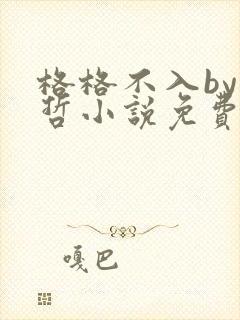 格格不入by
哲小說免費
嘎巴